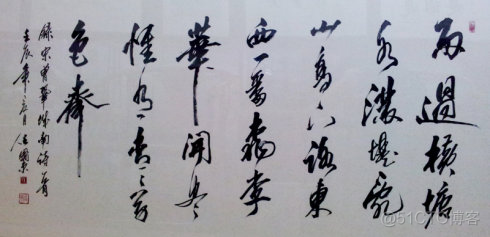 雨過横塘
水滿堤亂
山高下路東
西一番桃李
華開尽
惟有青々草
色齊
錄宋曾鞏城南詩一首
壬辰年
@51CTO博客